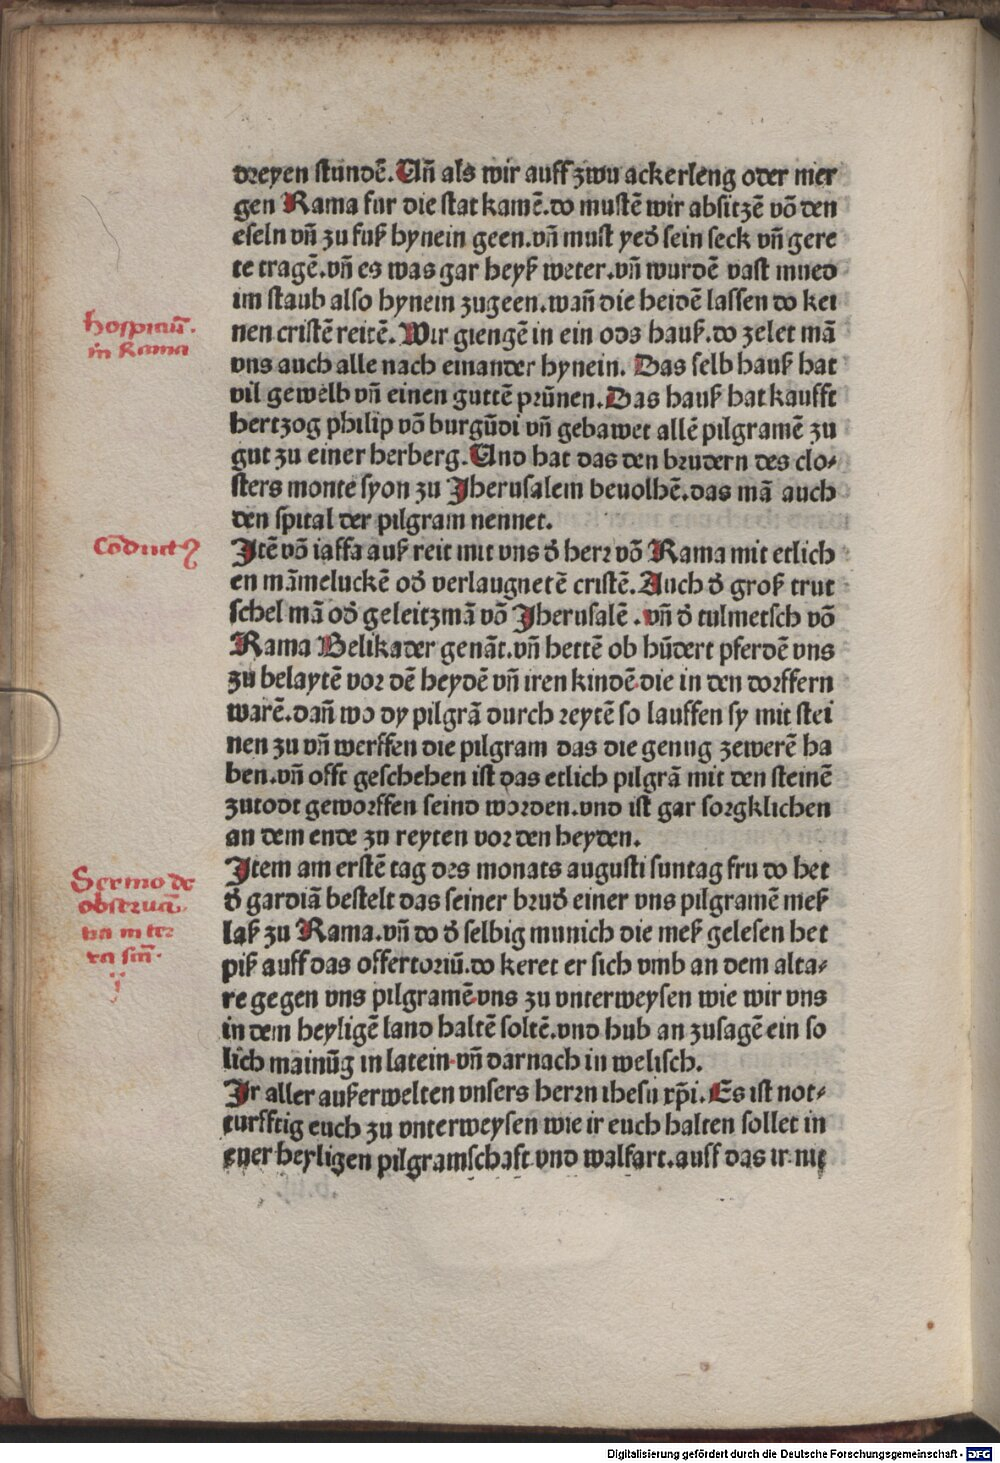 dreyen stundē. Uñ als wir auff zwu ackerleng oder mer
gen Rama fur die stat kamē. do mustē wir absitzē vō den
eseln vñ zu fuß hynein geen. vñ must yed̄ sein seck vñ gere
te tragē. vñ es was gar heyß weter. vñ wurdē vast mued
im staub also hynein zugeen. wañ die heidē lassen do kei
nen cristē reitē. Wir giengē in ein ods hauß. do zelet mā
vns auch alle nach einander hynein. Das selb hauß hat
vil gewelb vñ einen guttē prūnen. Das hauß hat kaufft
hertzog philip vō burgūdi vñ gebawet allē pilgramē zu
gut zu einer herberg. Und hat das den brudern des clo⸗
sters monte syon zu Jherusalem beuolhē. das mā auch
den spital der pilgram nennet.
Jtē vō iaffa auß reit mit vns d̄ herr vō Rama mit etlich
en māmeluckē od̄ verlaugnetē cristē. Auch d̄ groß trut
schel mā od̄ geleitzmā vō Jherusalē . vñ d̄ tulmetsch vō
Rama Belikader genāt. vñ hettē ob hūdert pferdē vns
zu belaytē vor dē heydē vñ iren kindē die in den dorffern
warē. dañ wo dy pilgrā durch reytē so lauffen sy mit stei
nen zu vñ werffen die pilgram das die genug zewerē ha
ben. vñ offt geschehen ist das etlich pilgrā mit den steinē
zutodt geworffen seind worden. vnd ist gar sorgklichen
an dem ende zu reyten vor den heyden.
Jtem am erstē tag des monats augusti suntag fru do het
d̄ gardiā bestelt das seiner brud̄ einer vns pilgramē meß
laß zu Rama. vñ do d̄ selbig munich die meß gelesen het
piß auff das offertoriū. do keret er sich vmb an dem alta⸗
re gegen vns pilgramē vns zu vnterweysen wie wir vns
in dem heyligē land haltē soltē. vnd hub an zusagē ein so
lich mainūg in latein vñ darnach in welisch.
Jr aller außerwelten vnsers herrn ihesu xp̄i. Es ist not⸗
turfftig euch zu vnterweysen wie ir euch halten sollet in
euer heyligen pilgramschaft vnd walfart. auff das ir
hospitiū.
in Rama
Cōduct
Sermo de
obserua
Digitalisierung gefördert durch die Deutsche Forschungsgemeinschaft - DFG